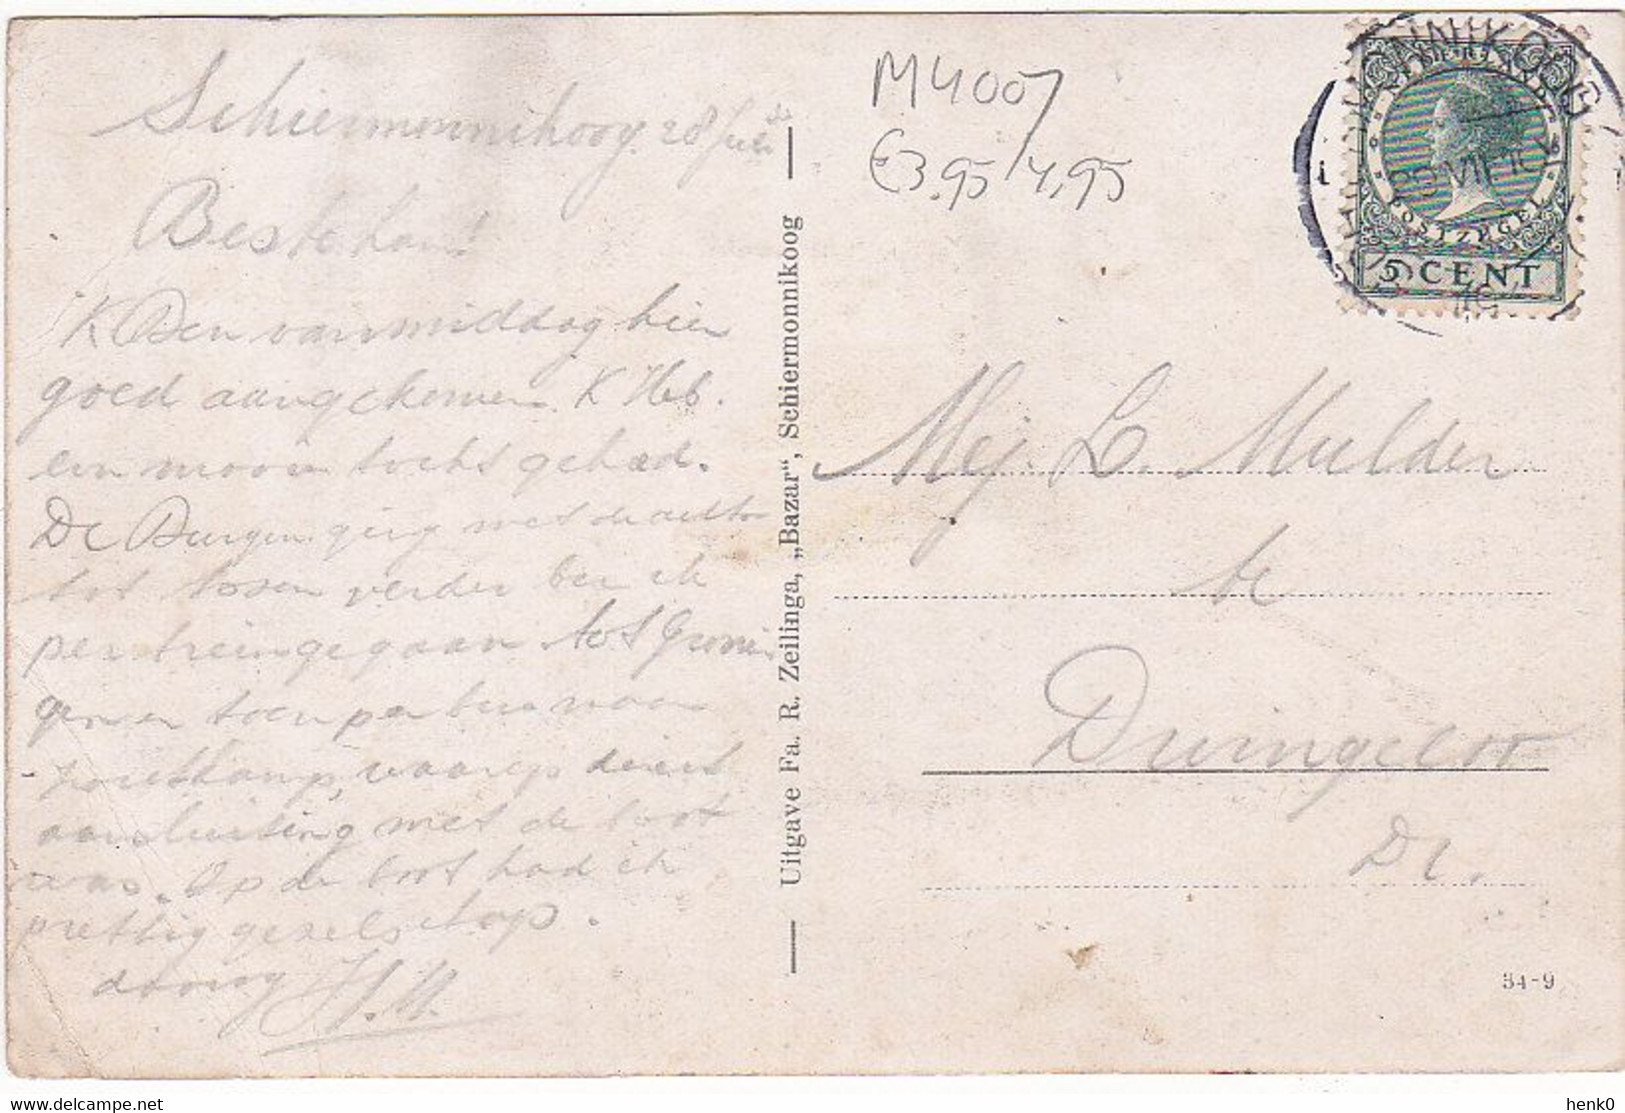 Schiermonnikoog 28 Juli
Beste
K Ben vanmiddag hier
goed aangekomen. K Heb.
een mooie tocht gehad.
De Burgem. ging met de
tot verder ben ik
per trein gegaan tot Gronin
gen en toen per bus naar
waarop direct
aansluiting met de boot
was. Op de boot had ik
prettig gezelschap.
H. M.
Uitgave Fa. R. Zeilinga, „Bazar“, Schiermonnikoog
M4007
€3,95/4,95
NEDERLAND
POSTZEGEL
5 CENT
Mej. L. Mulder
te
Dwingeloo
Dr.
34-9
henk0